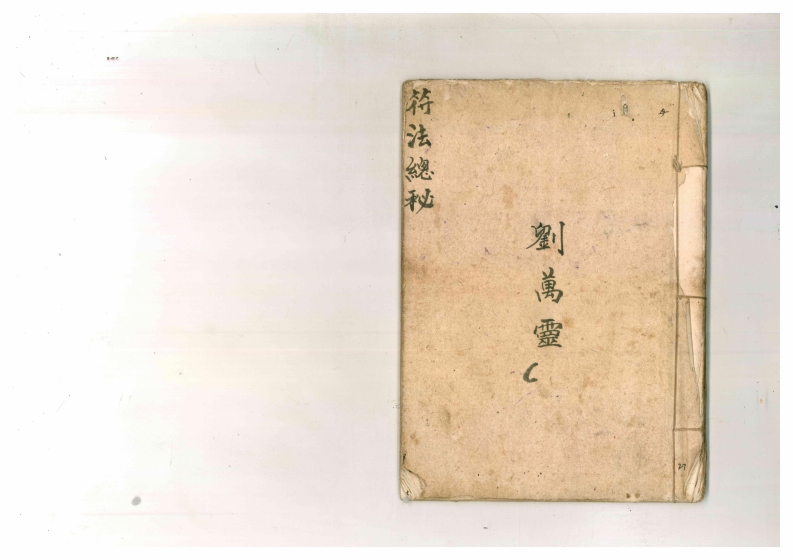 符法總秘
劉萬靈
27